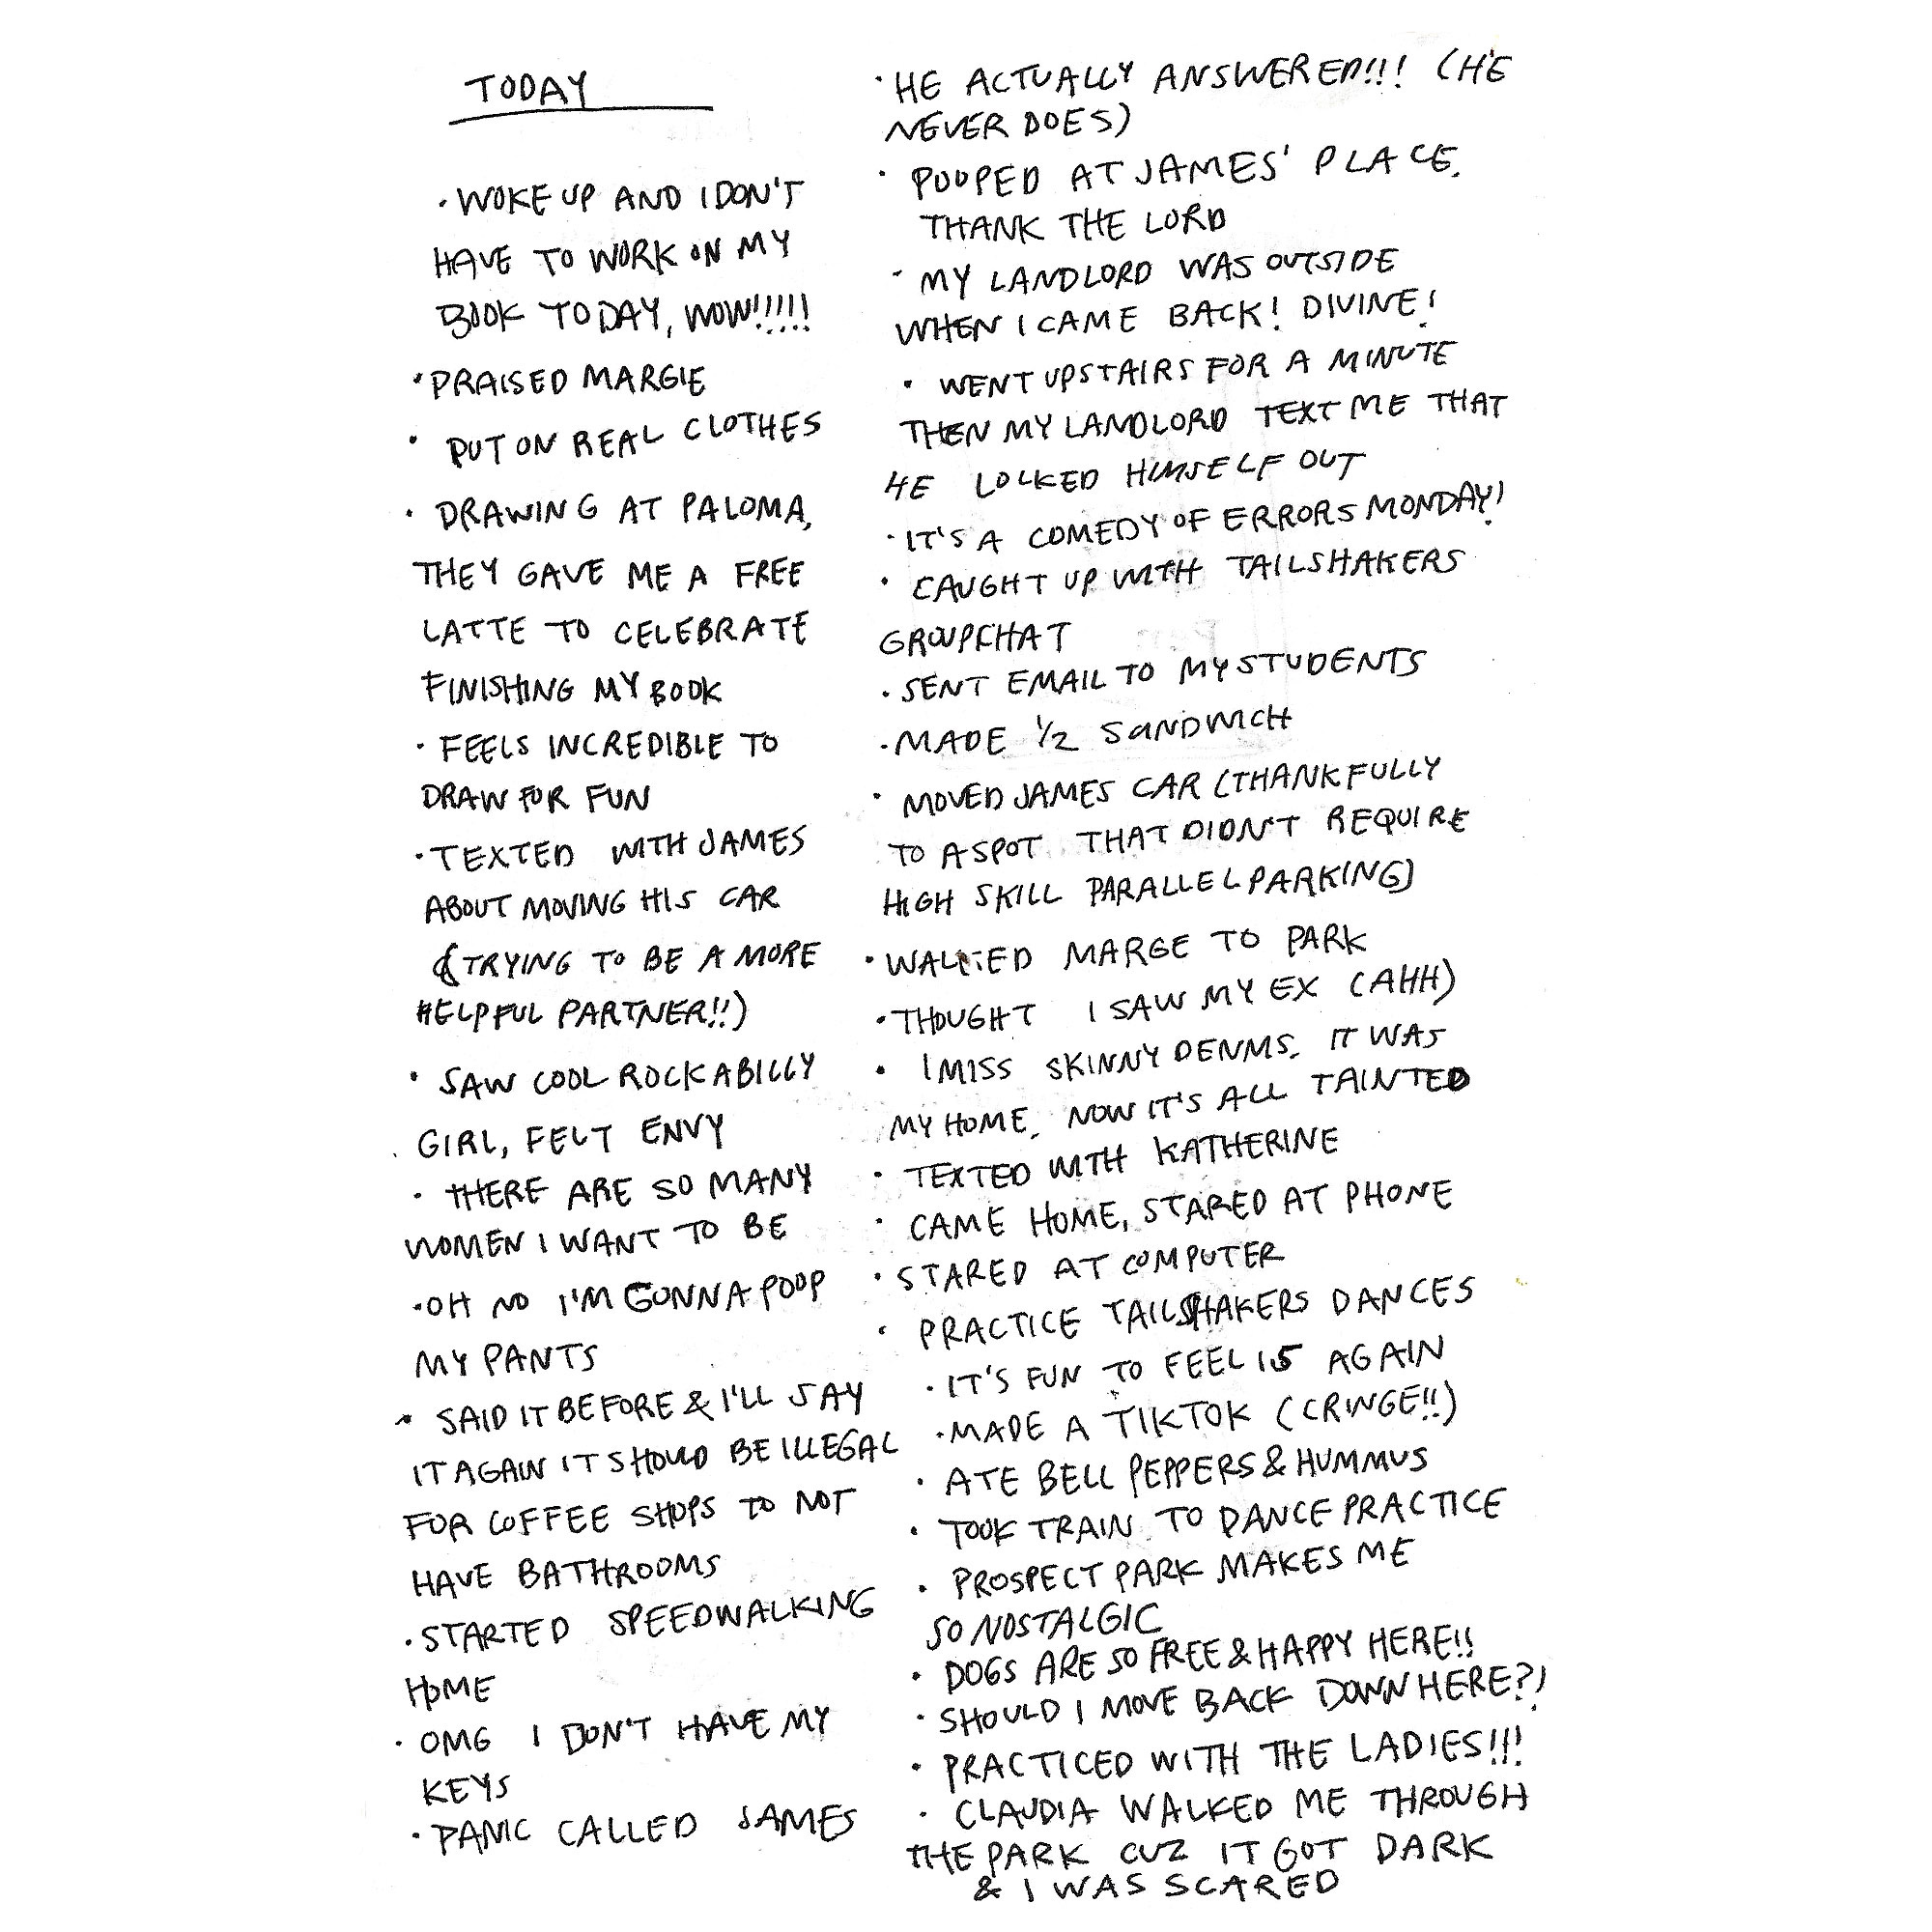 TODAY
· WOKE UP AND I DON'T
HAVE TO WORK ON MY
BOOK TODAY, WOW!!!!!
· PRAISED MARGIE
· PUT ON REAL CLOTHES
· DRAWING AT PALOMA,
THEY GAVE ME A FREE
LATTE TO CELEBRATE
FINISHING MY BOOK
· FEELS INCREDIBLE TO
DRAW FOR FUN
· TEXTED WITH JAMES
ABOUT MOVING HIS CAR
(TRYING TO BE A MORE
HELPFUL PARTNER!!)
· SAW COOL ROCKABILLY
GIRL, FELT ENVY
· THERE ARE SO MANY
WOMEN I WANT TO BE
· OH NO I'M GONNA POOP
MY PANTS
· SAID IT BEFORE & I'LL SAY
IT AGAIN IT SHOULD BE ILLEGAL
FOR COFFEE SHOPS TO NOT
HAVE BATHROOMS
· STARTED SPEEDWALKING
HOME
· OMG I DON'T HAVE MY
KEYS
· PANIC CALLED JAMES
· HE ACTUALLY ANSWERED!!! (HE
NEVER DOES)
· POOPED AT JAMES' PLACE.
THANK THE LORD
· MY LANDLORD WAS OUTSIDE
WHEN I CAME BACK! DIVINE!
· WENT UPSTAIRS FOR A MINUTE
THEN MY LANDLORD TEXT ME THAT
HE LOCKED HIMSELF OUT
· IT'S A COMEDY OF ERRORS MONDAY!
· CAUGHT UP WITH TAILSHAKERS
GROUPCHAT
· SENT EMAIL TO MY STUDENTS
· MADE 1/2 SANDWICH
· MOVED JAMES CAR (THANKFULLY
TO A SPOT THAT DIDN'T REQUIRE
HIGH SKILL PARALLEL PARKING)
· WALKED MARGE TO PARK
· THOUGHT I SAW MY EX (AHH)
· I MISS SKINNY DENNIS. IT WAS
MY HOME. NOW IT'S ALL TAINTED
· TEXTED WITH KATHERINE
· CAME HOME, STARED AT PHONE
· STARED AT COMPUTER
· PRACTICE TAILSHAKERS DANCES
· IT'S FUN TO FEEL 15 AGAIN
· MADE A TIKTOK (CRINGE!!)
· ATE BELL PEPPERS & HUMMUS
· TOOK TRAIN TO DANCE PRACTICE
· PROSPECT PARK MAKES ME
SO NOSTALGIC
· DOGS ARE SO FREE & HAPPY HERE!!
· SHOULD I MOVE BACK DOWN HERE?!
· PRACTICED WITH THE LADIES!!!
· CLAUDIA WALKED ME THROUGH
THE PARK CUZ IT GOT DARK
& I WAS SCARED